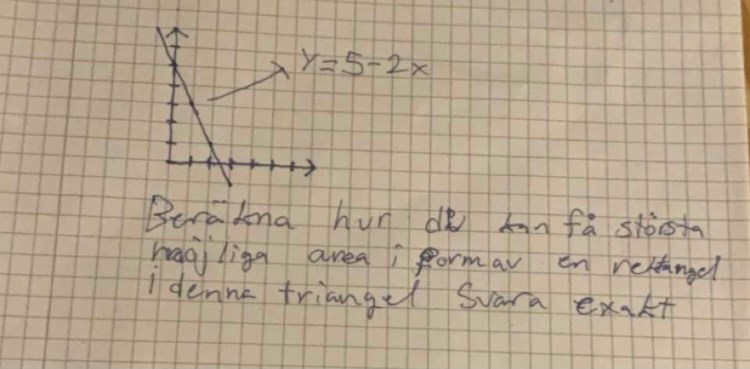 y=5-2x
Beräkna hur du kan få största
möjliga area i form av en rektangel
i denna triangel Svara exakt